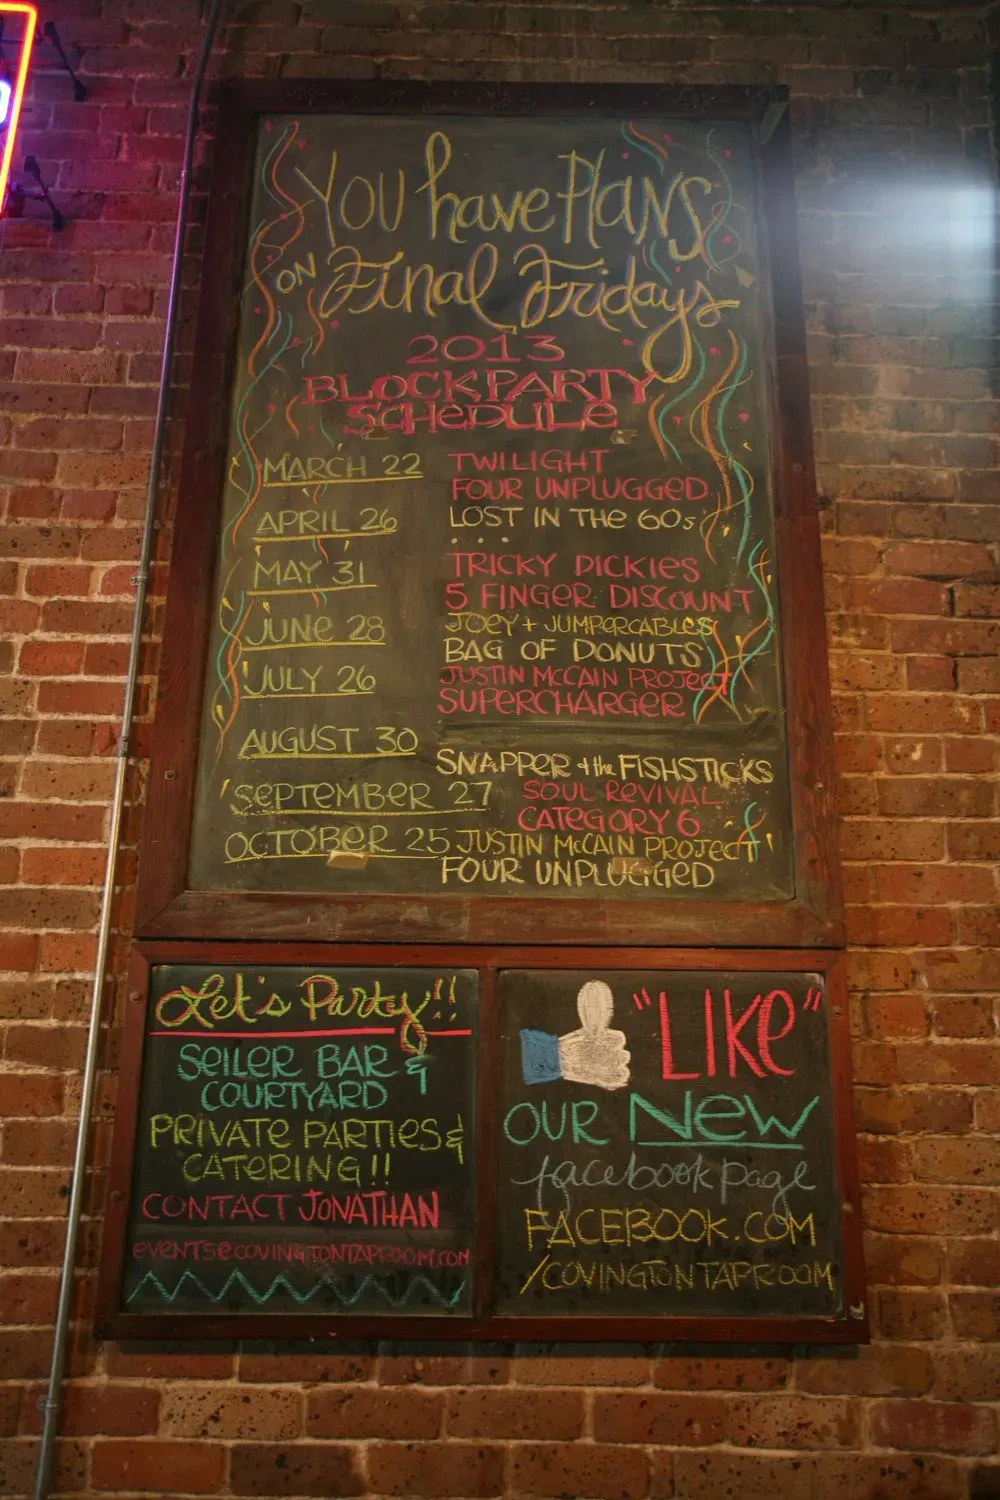 You have Plans
on Final Fridays
2013
BLOCKPARTY
SCHEDULE
MARCH 22 TWILIGHT
FOUR UNPLUGGED
APRIL 26 LOST IN THE 60s
...
MAY 31 TRICKY DICKIES
5 FINGER DISCOUNT
JUNE 28 JOEY + JUMPERCABLES
BAG OF DONUTS
JULY 26 JUSTIN McCAIN PROJECT
SUPERCHARGER
AUGUST 30 SNAPPER + the FISHSTICKS
SEPTEMBER 27 SOUL REVIVAL
CATEGORY 6
OCTOBER 25 JUSTIN McCAIN PROJECT
FOUR UNPLUGGED
Let's Party!!
SEILER BAR &
COURTYARD
PRIVATE PARTIES &
CATERING!!
CONTACT JONATHAN
EVENTS@COVINGTONTAPROOM.COM
"LIKE"
OUR NEW
facebook page
FACEBOOK.COM
/COVINGTONTAPROOM